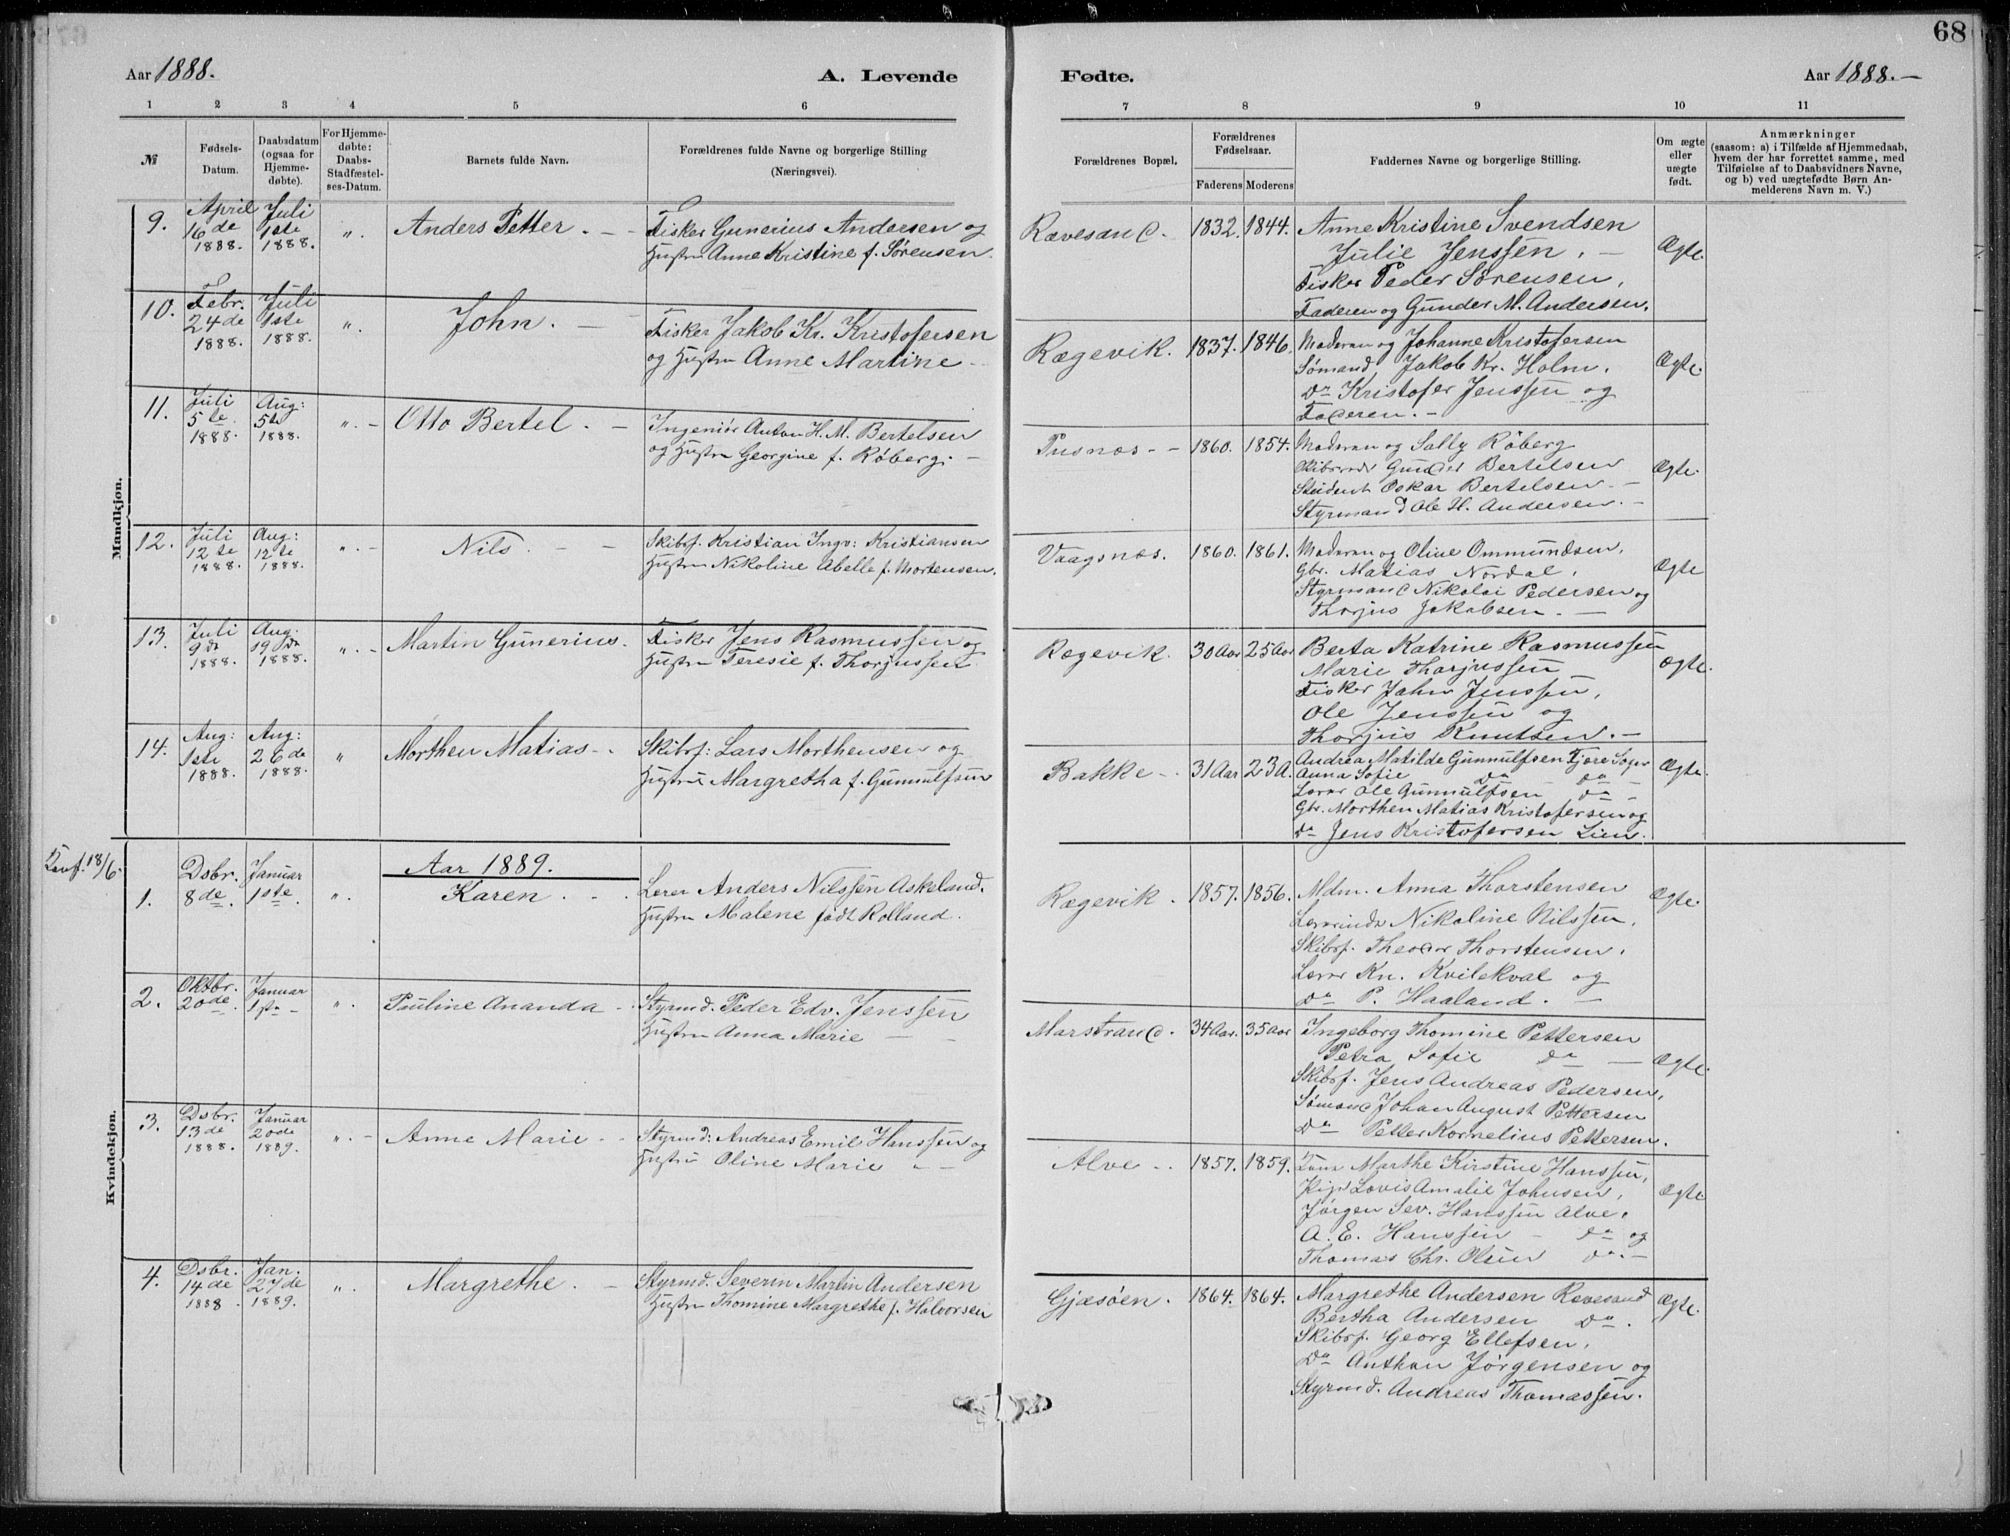 68
Aar 1888.
A. Levende Fødte.
Aar 1888. —
1 2 3 4 5 6 7 8 9 10 11
№
Fødsels-Datum.
Daabsdatum (ogsaa for Hjemme-døbte).
For Hjemme-døbte: Daabs-Stadfæstel-ses-Datum.
Barnets fulde Navn.
Forældrenes fulde Navne og borgerlige Stilling (Næringsvei).
Forældrenes Bopæl.
Forældrenes Fødselsaar.
Faderens Moderens
Faddernes Navne og borgerlige Stilling.
Om ægte eller uægte født.
Anmærkninger (saasom: a) i Tilfælde af Hjemmedaab, hvem der har forrettet samme, med Tilføielse af to Daabsvidners Navne, og b) ved uægtefødte Børn An-melderens Navn m. V.)
Mandkjøn.
9. April 16de 1888. Juli 1ste 1888. „. Anders Petter. —
Fisker Gunerius Andersen og
Hustru Anne Kristine f. Sörensen.
Rævesand. 1832. 1844.
Anne Kristine Svendsen
Julie Jenssen. —
Fisker Peder Sörensen,
Faderen og Gunder M. Andersen.
Ægte.
10. Febr. 24de 1888. Juli 1ste 1888. „. John. —
Fisker Jakob Kr. Kristofersen
og Hustru Anne Martine —
Rægevik. 1837. 1846.
Moderen og Johanne Kristofersen
Sømand Jakob Kr. Holm.
Do Kristofer Jenssen og
Faderen. —
Ægte.
11. Juli 5te 1888. Aug: 5te 1888. „. — Otto Bertel. —
Ingeniör Anton H. M. Bertelsen
og Hustru Georgine f. Röberg. —
Pusnæs — 1860. 1854.
Moderen og Sally Röberg
Gunder Bertelsen
Student Oskar Bertelsen. —
Styrmand Ole H. Andersen. —
Ægte.
12. Juli 12te 1888. Aug: 12te 1888. „. — Nils. — —
Skibsf. Kristian Ingv: Kristiansen
Hustru Nikoline Abelle f. Mortensen.
Vaagsnæs. 1860. 1861.
Moderen og Oline Ommundsen.
Gbr. Matias Nordal.
Styrmand Nikolai Pedersen og
Thorjus Jakobsen. —
Ægte
13. Juli 9de 1888. Aug: 19de 1888. „. — Martin Gunerius.
Fisker Jens Rasmussen og
Hustru Teresie f. Thorjussen
Rægevik. 30 Aar 25 Aar
Berta Katrine Rasmussen
Marie Thorjussen
Fisker John Jenssen,
Ole Jenssen og
Thorjus Knutsen. —
Ægte.
14. Aug: 1ste 1888. Aug: 26de 1888. „ Morthen Matias —
Skibsf: Lars Morthensen og
Hustru Margretha f. Gunnulfsen
Bakke — 31 Aar 23 A.
Andrea Matilde Gunnulfsen Fjære Sogn
Anna Sofie Do do
Lærer Ole Gunnulfsen do —
Gbr. Morthen Matias Kristofersen og
Do Jens Kristofersen Lien.
Ægte.
Kvindekjøn.
Aar 1889.
Konf. 18/6.
1. Dsbr. 8de. Januar 1ste. „. Karen. —
Lærer Anders Nilssen Askeland.
Hustru Malene født Rolland.
Rægevik. 1857. 1856.
Mdm. Anna Thorstensen
Lærerinde Nikoline Nilssen,
Skibsf. Theodor Thorstensen,
Lærer Kn. Kvilekval og
Do P. Haaland. —
Ægte.
2. Oktbr. 20de. Januar 1ste — „. Pauline Ananda —
Styrmd. Peder Edv. Jenssen
Hustru Anna Marie —
Marstrand. 34 Aar. 35 Aar
Ingeborg Thomine Pettersen
Petra Sofie do —
Skibsf. Jens Andreas Pedersen,
Sømand Johan August Pettersen
Do Petter Kornelius Pettersen.
Ægte.
3. Dsbr. 13de 1888. Januar 20de 1889. „. — Anne Marie —
Styrmd: Andreas Emil Hanssen og
Hustru Oline Marie —
Alve — 1857. 1859.
Marthe Kirstine Hanssen,
Pige Lovis Amalie Johnsen,
Jørgen Sev. Hanssen Alve,
A. E. Hanssen — do og
Thomas Chr. Olsen do. —
Ægte
4. Dsbr. 14de 1888. Jan. 27de 1889. „. Margrethe. —
Styrmd. Severin Martin Andersen
Hustru Thomine Margrethe f. Halvorsen
Gjæsøen. 1864. 1864.
Margrethe Andersen Revesand
Bertha Andersen Do.
Skibsf. Georg Ellefsen,
Do Anthon Jørgensen og
Styrmd. Andreas Thomassen.
Ægte.